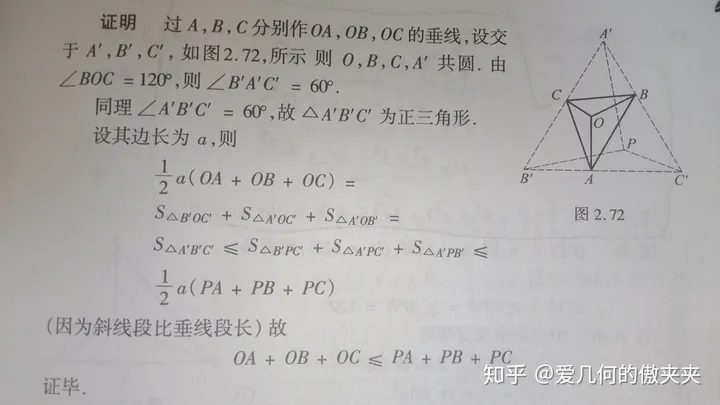 证明 过 A, B, C 分别作 OA, OB, OC 的垂线, 设交
于 A′, B′, C′, 如图2.72, 所示 则 O, B, C, A′ 共圆. 由
∠BOC = 120°, 则 ∠B′A′C′ = 60°.
同理 ∠A′B′C′ = 60°, 故 △A′B′C′ 为正三角形.
设其边长为 a, 则
1/2 a(OA + OB + OC) =
S△B′OC′ + S△A′OC′ + S△A′OB′ =
S△A′B′C′ ≤ S△B′PC′ + S△A′PC′ + S△A′PB′ ≤
1/2 a(PA + PB + PC)
(因为斜线段比垂线段长) 故
OA + OB + OC ≤ PA + PB + PC
证毕.
A′
C
B
O
P
B′
A
C′
图 2.72
知乎 @爱几何的傲夹夹